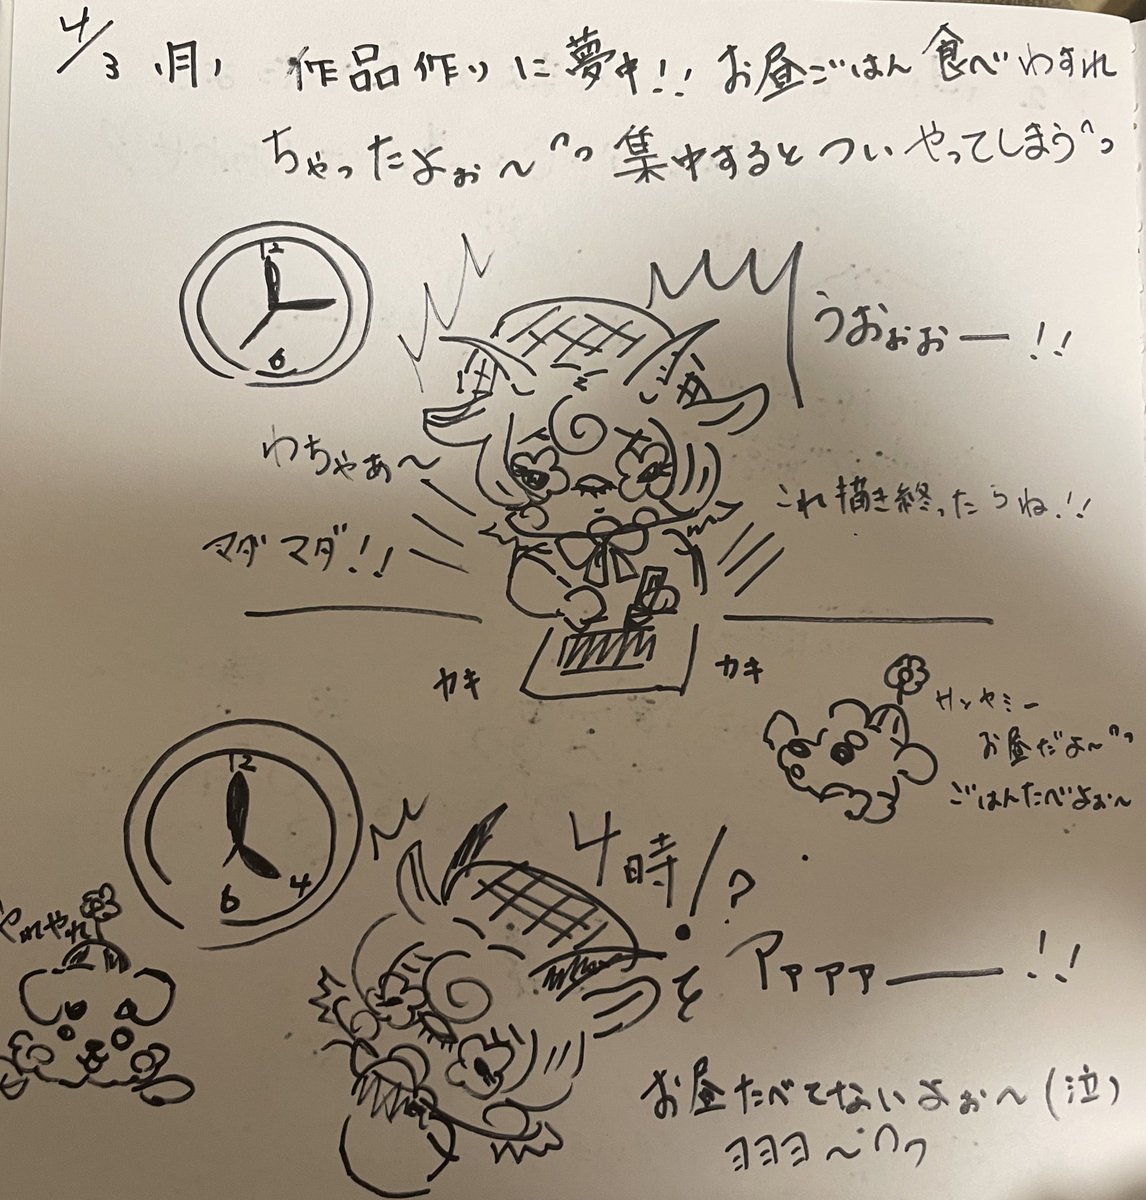 4/3 (月) 作品作りに夢中!! お昼ごはん食べわすれ
ちゃったよぉ〜 集中するとついやってしまう
12
6
うおぉぉー!!
わちゃぁ〜
マダマダ!!
これ描き終ったらね!!
カキ
カキ
お昼だよ〜
ごはんたべよぉ〜
12
4
6
やれやれ
4時!?
アァァァー!!
お昼たべてないよぉ〜(泣)
ヨヨヨ〜